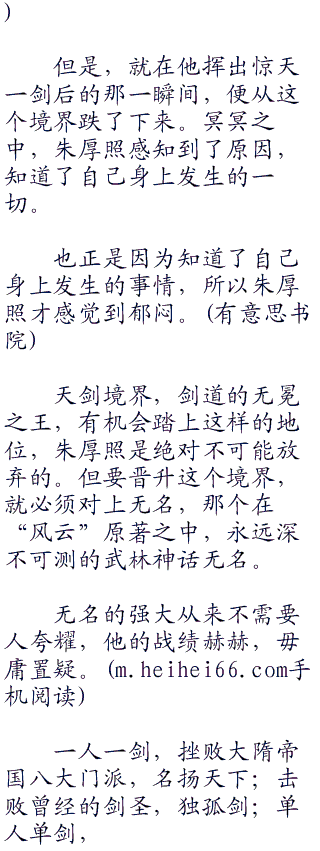 )
但是，就在他挥出惊天
一剑后的那一瞬间，便从这
个境界跌了下来。冥冥之
中，朱厚照感知到了原因，
知道了自己身上发生的一
切。
也正是因为知道了自己
身上发生的事情，所以朱厚
照才感觉到郁闷。(有意思书
院)
天剑境界，剑道的无冕
之王，有机会踏上这样的地
位，朱厚照是绝对不可能放
弃的。但要晋升这个境界，
就必须对上无名，那个在
“风云”原著之中，永远深
不可测的武林神话无名。
无名的强大从来不需要
人夸耀，他的战绩赫赫，毋
庸置疑。(m.heihei66.com手
机阅读)
一人一剑，挫败大隋帝
国八大门派，名扬天下；击
败曾经的剑圣，独孤剑；单
人单剑，